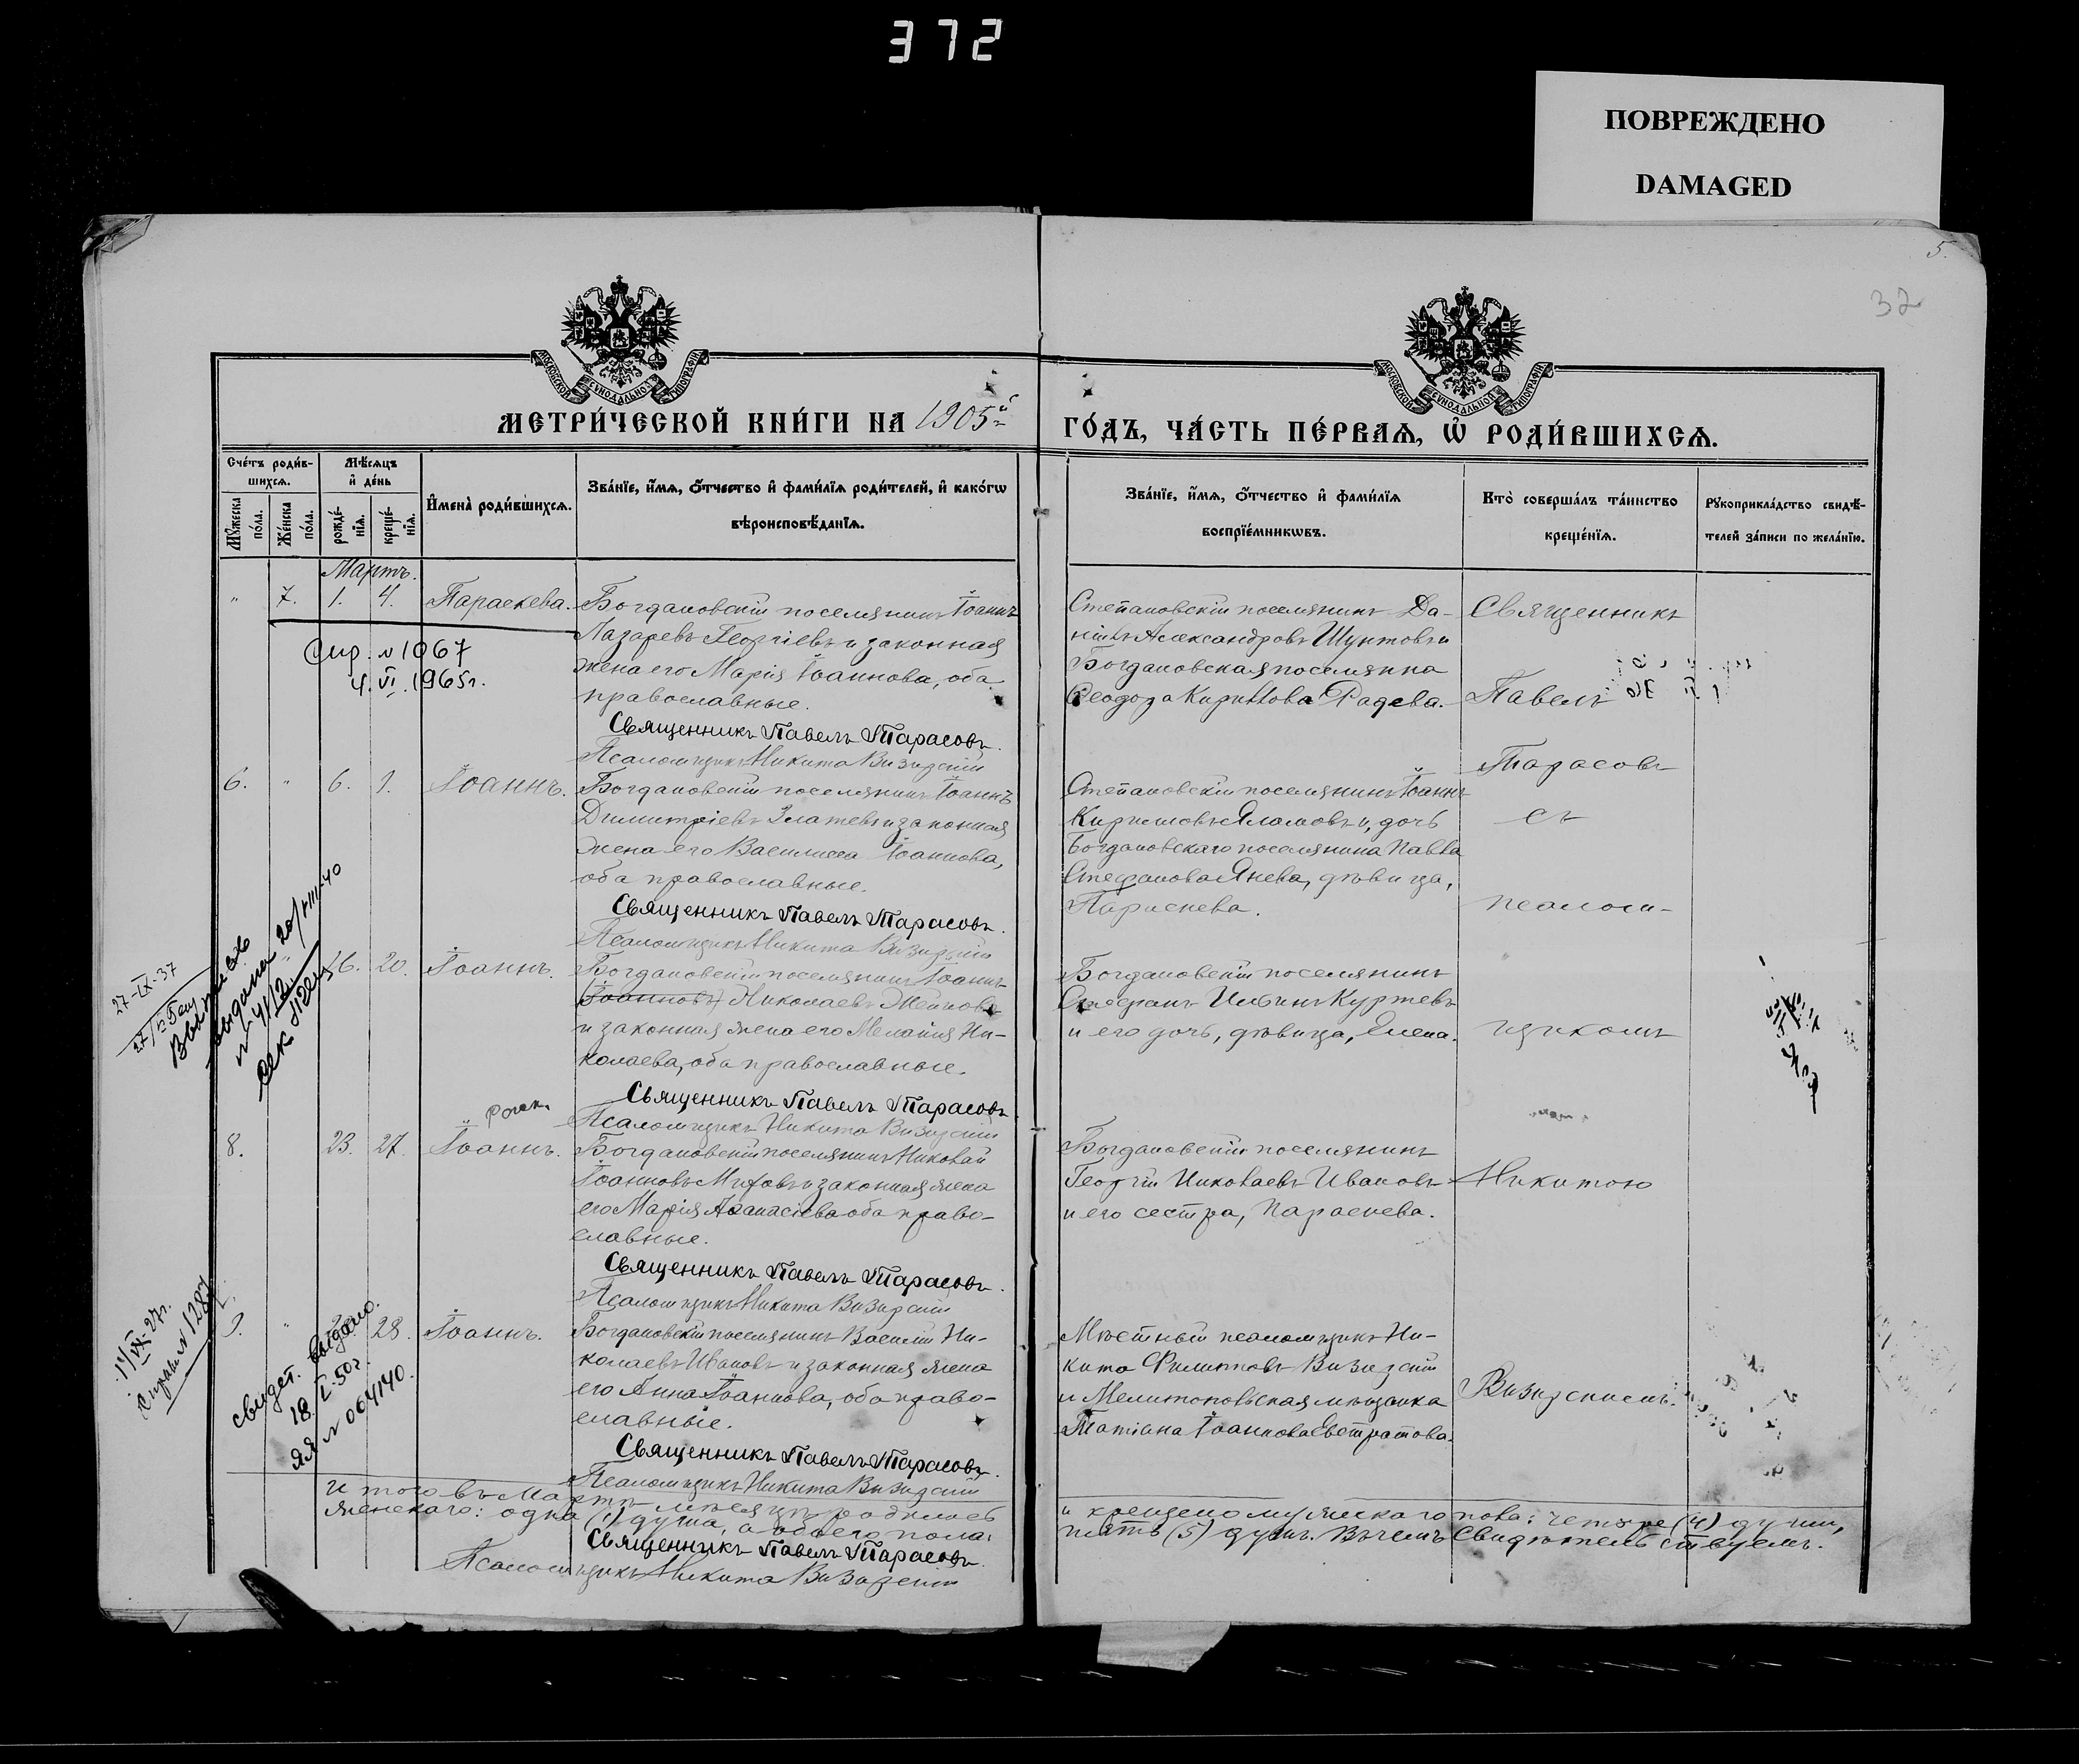 372
ПОВРЕЖДЕНО
DAMAGED
5.
32
МОСКОВСКОЙ СУНОДАЛЬНОЙ ТИПОГРАФІИ
МОСКОВСКОЙ СУНОДАЛЬНОЙ ТИПОГРАФІИ
МЕТРИ́ЧЕСКОЙ КНИ́ГИ НА 1905й
ГО́ДЪ, ЧА́СТЬ ПЕ́РВАѦ, Ѡ҆ РОДИ́ВШИХСѦ.
Сче́тъ роди́в-
шихсѧ.
Мꙋ́жеска по́ла.
Же́нска по́ла.
Мѣ́сѧцъ
и҆ де́нь
рожде́-
нїѧ.
креще́-
нїѧ.
И҆мена̀ роди́вшихсѧ.
Зва́нїе, и҆́мѧ, ѻ҆́тчество и҆ фами́лїѧ роди́телей, и҆ како́гѡ
вѣроисповѣ́данїѧ.
Зва́нїе, и҆́мѧ, ѻ҆́тчество и҆ фами́лїѧ
воспрїе́мникѡвъ.
Кто̀ соверша́лъ та́инство
креще́нїѧ.
Рꙋкоприкла́дство свидѣ́-
телей за́писи по жела́нїю.
Мартъ.
" 7. 1. 4. Параскева.
Богдановскій поселянинъ Іоаннъ
Лазаревъ Георгіевъ и законная
жена его Марія Іоаннова, оба
православные.
Священникъ Павелъ Тарасовъ.
Псаломщикъ Никита Визирскій
Степановскій поселянинъ Да-
ніилъ Александровъ Шунтовъ и
Богдановская поселянка
Ѳеодора Кириллова Радева.
Спр. № 1067
4.VI.1965г.
6. " 6. 9. Іоаннъ.
Богдановскій поселянинъ Іоаннъ
Димитріевъ Златевъ и законная
жена его Василисса Іоаннова,
оба православные.
Священникъ Павелъ Тарасовъ.
Псаломщикъ Никита Визирскій
Степановскій поселянинъ Іоаннъ
Кирилловъ Яламовъ и, дочь
Богдановскаго поселянина Павла
Стефанова Янева, дѣвица,
Параскева.
16. 20. Іоаннъ.
Богдановскій поселянинъ Іоаннъ
(Іоанновъ) Николаевъ Жейновъ
и законная жена его Меланія Ни-
колаева, оба православные.
Священникъ Павелъ Тарасовъ.
Псаломщикъ Никита Визирскій
Богдановскій поселянинъ
Стефанъ Ильинъ Куртевъ
и его дочь, дѣвица, Елена.
27-IX-37
выдана 20/VIII-40
8. 23. 27. Іоаннъ.
Богдановскій поселянинъ Николай
Іоанновъ Миховъ и законная жена
его Марія Аѳанасіева оба право-
славные.
Священникъ Павелъ Тарасовъ.
Псаломщикъ Никита Визирскій
Богдановскій поселянинъ
Георгій Николаевъ Ивановъ
и его сестра, Параскева.
9. " 28. Іоаннъ.
Богдановскій поселянинъ Василій Ни-
колаевъ Ивановъ и законная жена
его Анна Іоаннова, оба право-
славные.
Священникъ Павелъ Тарасовъ.
Псаломщикъ Никита Визирскій
Мѣстный псаломщикъ Ни-
кита Филипповъ Визирскій
и Мелитопольская мѣщанка
Татіана Іоаннова Евстратова.
Справк № 1287
свидет. выдано.
18/I.50г.
ЯЯ № 064140.
Священникъ
Павелъ
Тарасовъ
съ
псалом-
щикомъ
Никитою
Визирскимъ.
Итого въ Мартѣ мѣсяцѣ родилось
и крещено мужескаго пола: четыре (4) души,
женскаго: одна (1) душа, а обоего пола:
пять (5) душъ. Въ чемъ свидѣтельствуемъ.
Священникъ Павелъ Тарасовъ.
Псаломщикъ Никита Визирскій